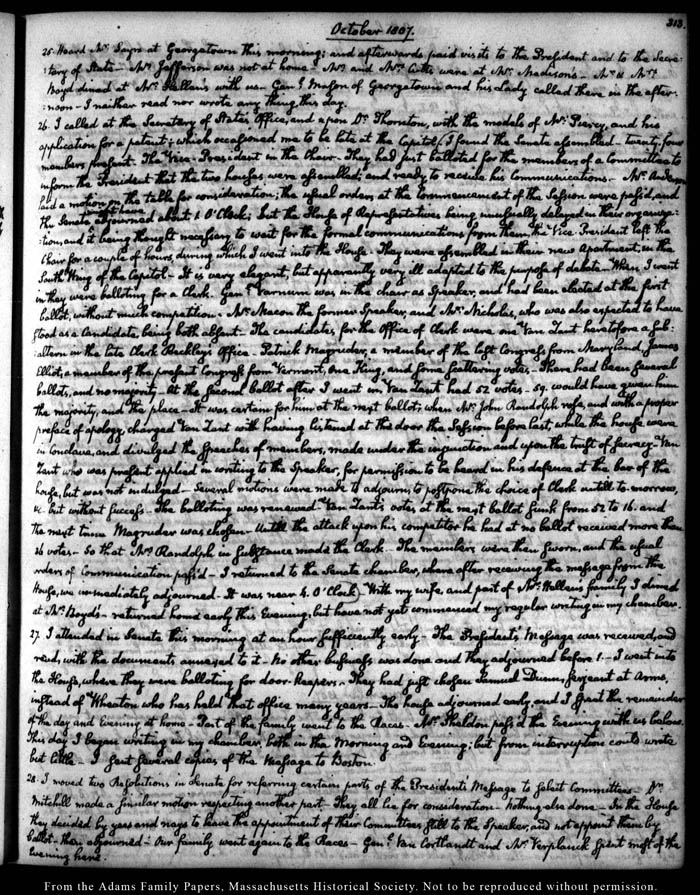 313.
October 1807.
25. Heard Mr. Sayrs at Georgetown this morning; and afterwards paid visits to the President and to the Secre:
:tary of State — Mr. Jefferson was not at home — Mr. and Mrs. Cutts were at Mr. Madison's — Mr. & Mrs.
Boyd dined at Mr. Hellen's with us — Genl. Mason of Georgetown and his lady called there in the after:
:noon — I neither read nor wrote any thing this day.
26. I called at the Secretary of State's Office, and upon Dr. Thornton, with the models of Mr. Percy, and his
application for a patent; which occasioned me to be late at the Capitol. I found the Senate assembled — twenty four
members present. The Vice-President in the Chair — They had just balloted for the members of a Committee to
inform the President that the two houses were assembled, and ready to receive his Communications. — Mr. Anderson
laid a motion on the table for consideration; the usual orders at the Commencement of the Session were pass'd, and
the Senate adjourned about 1 O'Clock; but the House of Representatives being unusually delayed in their organiza:
:tion, and it being thought necessary to wait for the formal communications from them, the Vice President left the
Chair for a couple of hours during which I went into the House. They were assembled in their new Apartment, in the
South Wing of the Capitol — It is very elegant, but apparently very ill adapted to the purpose of debate. When I went
in they were balloting for a Clerk. Genl. Varnum was in the chair as Speaker, and had been elected at the first
ballot, without much competition. Mr. Macon the former Speaker, and Mr. Nicholas, who was also expected to have
stood as a Candidate, being both absent — The candidates, for the Office of Clerk were one Van Zant heretofore a sub:
:altern in the late Clerk Beckley's Office — Patrick Magruder, a member of the last Congress from Maryland, James
Elliot, a member of the present Congress from Vermont, one King, and some scattering votes. — There had been several
ballots, and no majority — At the second ballot after I went in Van Zant had 52 votes — 59. would have given him
the majority, and the place — It was certain for him at the next ballot; when Mr. John Randolph rose, and with a proper
preface of apology, charged Van Zant with having listened at the door the Session before last, while the house were
in Conclave, and divulged the Speeches of members, made under the injunction and upon the trust of secrecy — Van
Zant who was present applied in writing to the Speaker, for permission to be heard in his defence at the bar of the
house, but was not indulged — Several motions were made to adjourn to postpone the choice of Clerk untill to-morrow,
&c. but without success — The balloting was renewed — Van Zant's votes at the next ballot sunk from 52 to 16. and
the next time Magruder was chosen — Untill the attack upon his competitor he had at no ballot received more than
26 votes — So that Mr. Randolph in substance made the Clerk — The members were then sworn, and the usual
orders of Communication pass'd — I returned to the Senate chamber, where after receiving the message from the
House, we immediately adjourned — It was near 4. O'Clock. — With my wife, and part of Mr. Hellen's family I dined
at Mr. Boyd's — returned home early this Evening, but have not yet commenced my regular writing in my chamber.
27. I attended in Senate this morning at an hour sufficiently early — The President's Message was received, and
read, with the documents annexed to it — No other business was done and they adjourned before 1. — I went into
the House, where they were balloting for door-keepers. They had just chosen Samuel Dunn, Serjeant at Arms,
instead of Wheaton who has held that office many years — The house adjourned early and I spent the remainder
of the day and evening at home — Part of the family went to the Races. — Mr. Sheldon pass'd the Evening with us below.
This day I began writing in my chamber, both in the Morning and Evening; but from interruption could write
but little — I sent several copies of the Message to Boston.
28. I moved two Resolutions in Senate for referring certain parts of the President's Message to select Committees — Dr.
Mitchill made a similar motion respecting another part — They all lie for consideration — Nothing else done — In the House
they decided by yeas and nays to leave the appointment of their Committees still to the Speaker, and not appoint them by
ballot — then adjourned — Our family went again to the Races — Genl. Van Cortlandt and Mr. Verplanck spent most of the
Evening here.
From the Adams Family Papers, Massachusetts Historical Society. Not to be reproduced without permission.